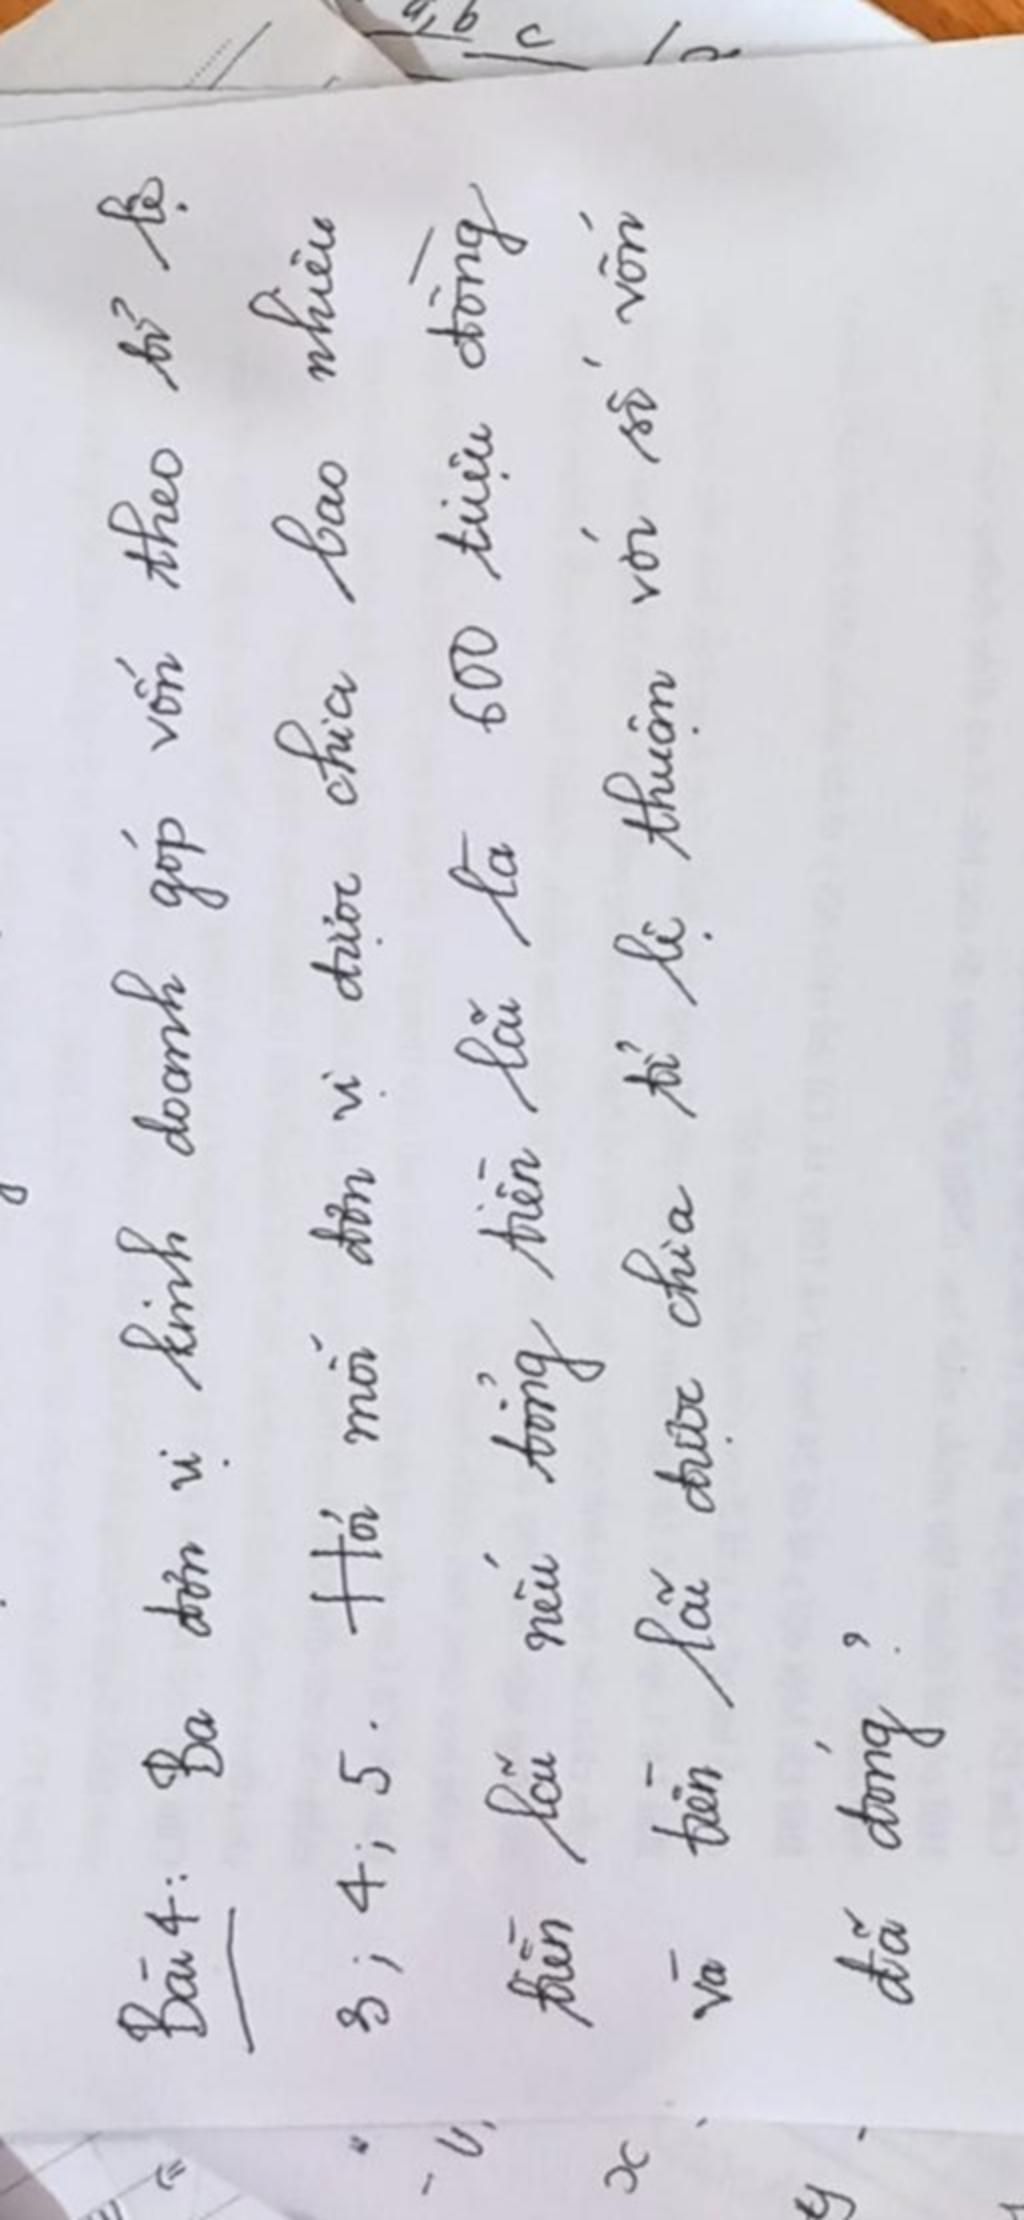 a, b c
Bài 4: Ba đơn vị kinh doanh góp vốn theo tỉ lệ
3; 4; 5. Hỏi mỗi đơn vị được chia bao nhiêu
tiền lãi nếu tổng tiền lãi là 600 triệu đồng
và tiền lãi được chia tỉ lệ thuận với số vốn
đã đóng?
x
y